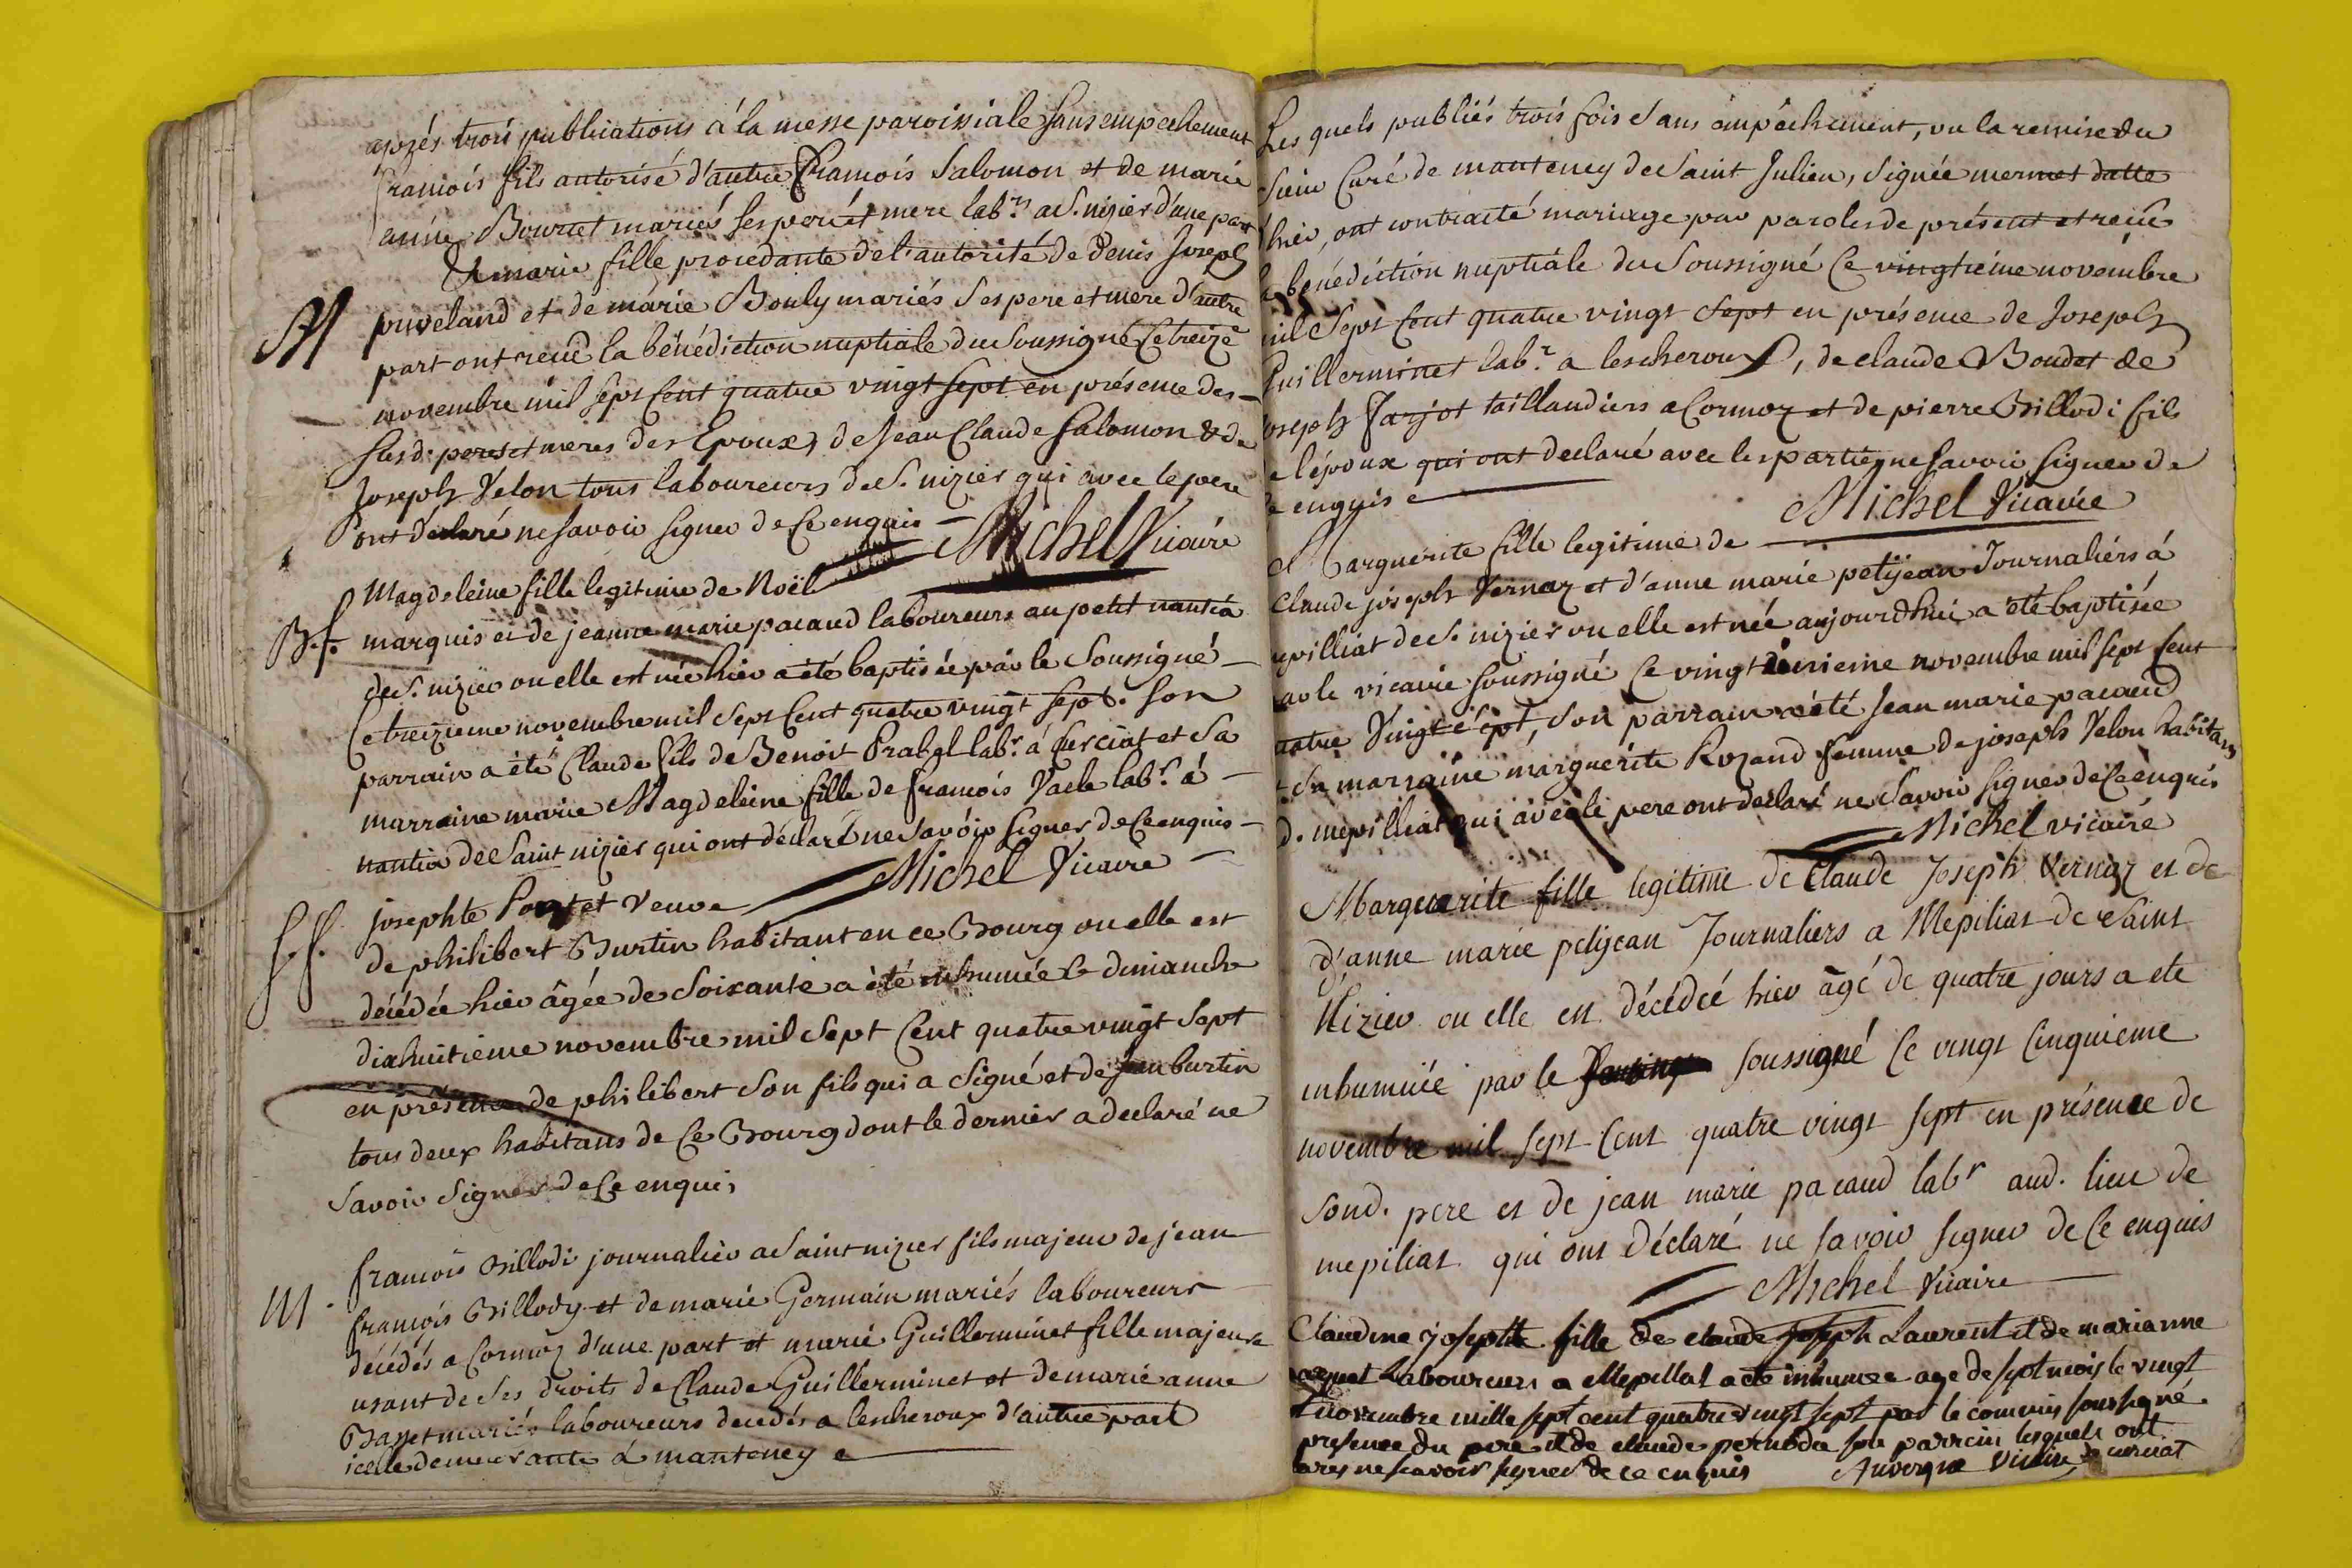 après trois publications à la messe paroissiale sans empechement
francois fils autorisé d'autre francois Salomon et de marie
anne Bourcet mariés ses pere et mere labrs a St. nizier d'une part
& marie fille procedante de l'autorité de Denis Joseph
M
puveland et de marie Bouly mariés ses pere et mere d'autre
part ont reçu la bénédiction nuptiale du Soussigné Ce treize
novembre mil sept Cent quatre vingt sept en présence des
susd. peres et meres des Epoux, de Jean Claude Salomon & de
Joseph Velon tous laboureurs de St. nizier qui avec le pere
ont déclaré ne savoir signer de Ce enquis Michel Vicaire
Magdeleine fille legitime de Noël
B. f. marquis et de jeanne marie pacaud laboureurs au petit nantia
de St. nizier ou elle est née hier a été baptisée par le Soussigné
Ce treizieme novembre mil Sept Cent quatre vingt sept. Son
parrain a été Claude fils de Benoit Prabel labr. à Curciat et Sa
marraine marie Magdeleine fille de francois Vacle labr. à
nantia de Saint nizier qui ont déclaré ne Savoir signer de Ce enquis
Michel Vicaire
S. f. josephte veuve
de philibert Burtin habitant en ce Bourg ou elle est
décédée hier âgée de Soixante a été inhumée le dimanche
dixhuitieme novembre mil Sept Cent quatre vingt Sept
en présence de philibert Son fils qui a Signé et de Jean burtin
tous deux habitans de Ce Bourg dont le dernier a declaré ne
Savoir Signer de Ce enquis
francois Billodi journalier a Saint nizier fils majeur de jean
M. francois Billody et de marie Germain mariés laboureurs
décédés a Cormoz d'une part et marie Guillerminet fille majeure
usant de Ses droits de Claude Guillerminet et de marie anne
Basset mariés laboureurs decedés a lescheroux d'autre part
icelle demeurante à manteney
Les quels publiés trois fois Sans empêchement, vu la remise du
Sieur Curé de manteney de Saint Julien, Signée mermet datte
hier, ont contracté mariage par paroles de présent et reçu
la bénédiction nuptiale du Soussigné Ce vingtieme novembre
mil Sept Cent quatre vingt Sept en présence de Joseph
Guillerminet labr. a lescheroux, de claude Boudet de
joseph Farjot taillandiers a Cormoz et de pierre Billodi fils
de l'époux qui ont declaré avec les parties ne Savoir Signer de
Ce enquis
Michel Vicaire
Marguerite fille legitime de
Claude joseph Vernaz et d'anne marie petijean Journaliers á
mepilliat de St. nizier ou elle est née aujourdhui a été baptisée
par le vicaire soussigné Ce vingt novembre mil sept Cent
quatre Vingt sept, Son parrain a été Jean marie pacaud
et Sa marraine marguerite Rozand femme de joseph Velon habitans
d. mepilliat qui avec le pere ont declaré ne Savoir signer de Ce enquis
Michel vicaire
Marguerite fille legitime de Claude Joseph Vernaz et de
d'anne marie petijean Journaliers a Mepiliat de Saint
Nizier ou elle est décédée hier âgé de quatre jours a ete
inhumée par le soussigné Ce vingt Cinquieme
novembre mil sept Cent quatre vingt sept en présence de
Sond. pere et de jean marie pacaud labr aud. lieu de
mepiliat qui ont déclaré ne savoir signer de Ce enquis
Michel Vicaire
Claudine josephte fille de claude joseph Laurent et de marianne
Laboureurs a Mepillat a eté inhumée age de sept mois le vingt
novembre mille sept cent quatre vingt sept par le commis soussigné
presence du pere et de claude son parrein lesquels ont
ne scavoir signer de ce enquis Auvergne Vicaire de curciat